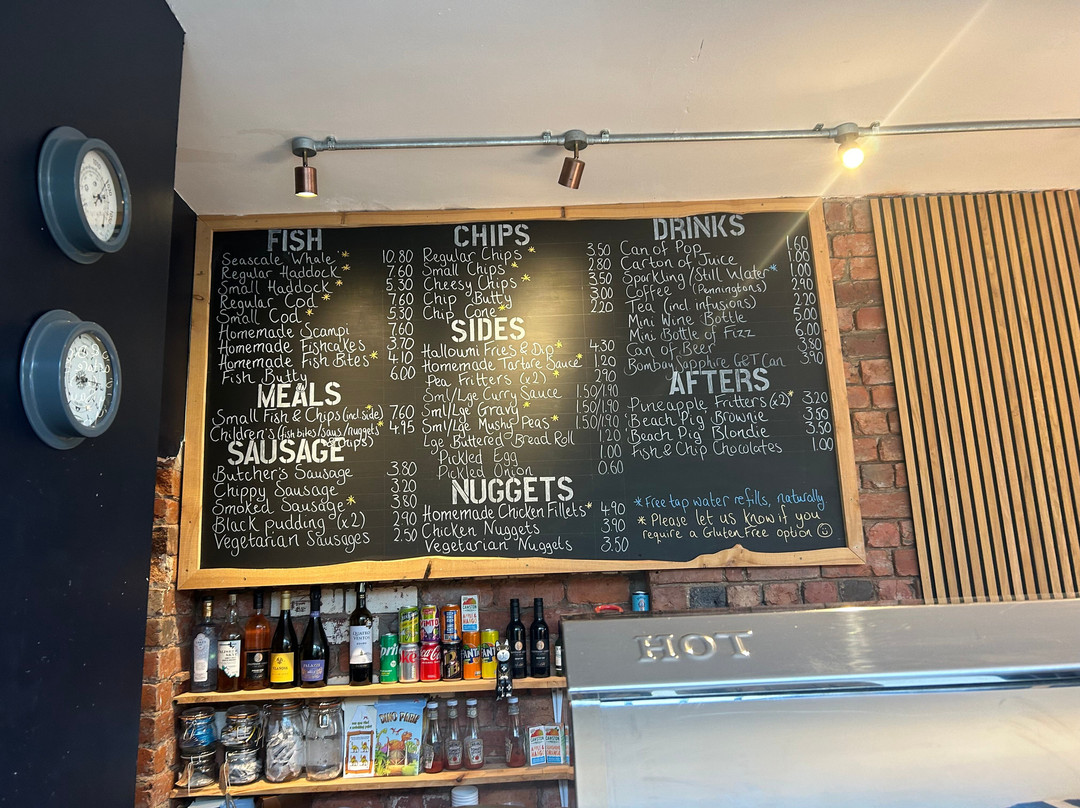 FISH
Seascale Whale * 10.80
Regular Haddock * 7.60
Small Haddock * 5.30
Regular Cod * 7.60
Small Cod * 5.30
Homemade Scampi 7.60
Homemade Fishcakes 3.70
Homemade Fish Bites * 4.10
Fish Butty 6.00
MEALS
Small Fish & Chips (incl. side) 7.60
Children's (fish bites/saus/nuggets * 4.95
+ chips)
SAUSAGE
Butcher's Sausage 3.80
Chippy Sausage 3.20
Smoked Sausage * 3.80
Black pudding (x2) 2.90
Vegetarian Sausages 2.50
CHIPS
Regular Chips * 3.50
Small Chips * 2.80
Cheesy Chips * 3.50
Chip Butty 3.00
Chip Cone * 2.20
SIDES
Halloumi Fries & Dip * 4.30
Homemade Tartare Sauce * 1.20
Pea Fritters (x2) * 2.90
Sml/Lge Curry Sauce 1.50/1.90
Sml/Lge Gravy * 1.50/1.90
Sml/Lge Mushy Peas * 1.50/1.90
Lge Buttered Bread Roll 1.20
Pickled Egg 1.00
Pickled Onion 0.60
NUGGETS
Homemade Chicken Fillets * 4.90
Chicken Nuggets 3.90
Vegetarian Nuggets 3.50
DRINKS
Can of Pop 1.60
Carton of Juice 1.00
Sparkling/Still Water * 1.00
Coffee (Penningtons) 2.90
Tea (incl infusions) 2.20
Mini Wine Bottle 5.00
Mini Bottle of Fizz 6.00
Can of Beer 3.50
Bombay Sapphire G&T Can 3.90
AFTERS
Pineapple Fritters (x2) * 3.20
'Beach Pig' Brownie 3.50
'Beach Pig' Blondie 3.50
Fish & Chip Chocolates 1.00
* Free tap water refills, naturally
* Please let us know if you
require a Gluten Free option
HOT
DINO PARK